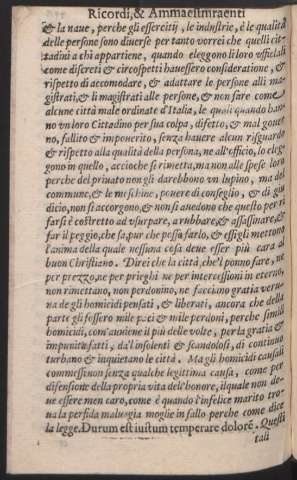 Ricordi, & Ammaestmraenti
& la naue, perche gli essercitij, le industrie, è le qualità
delle persone sono diuerse per tanto vorrei che quelli cit-
tadini a chi appartiene, quando eleggono li loro officiali
come discreti & circospetti hauessero consideratione, &
rispetto di accomodare, & adattare le persone alli ma
gistrati, & li magistrati alle persone, & non fare come
alcune città male ordinate d'Italia, le quali quando han-
no vn loro Cittadino per sua colpa, difetto, & mal gouer
no, fallito & impouerito, senza hauere alcun risguardo
& rispetto alla qualità della persona, ne all'officio, lo eleg
gono in quello, accioche si rimetta, ma non alle spese loro
perche del priuato non gli darebbono vn lupino, ma del
commune, & le meschine, pouere di conseglio, & di giu
dicio, non si accorgono, & non si auedono che questo per ri
farsi è costretto ad vsurpare, arrubbare, & assassinare, &
far il peggio, che sa, pur che possa farlo, & essi gli mettono
l'anima della quale nessuna cosa deue esser più cara al
buon Christiano. Direi che la città, che'l ponno fare, ne
per prezzo, ne per prieghi ne per intercessioni in eterno,
non rimettano, non perdonino, ne facciano gratia veru-
na de gli homicidi pensati, & liberati, ancora che della
parte gli fossero mile paci & mile perdoni, perche simili
homicidi, com'auuiene il più delle volte, per la gratia &
impunità fatti, da l'insolenti & scandolosi, di continuo
turbano & inquietano le città. Ma gli homicidi causali
commessi non senza qualche legittima causa, come per
difensione della propria vita dell'honore, il quale non de-
ue essere men caro, come è quando l'infelice marito tro-
ua la perfida maluagia moglie in fallo perche come dice
la legge. Durum est iustum temperare dolorē. Questi
tali